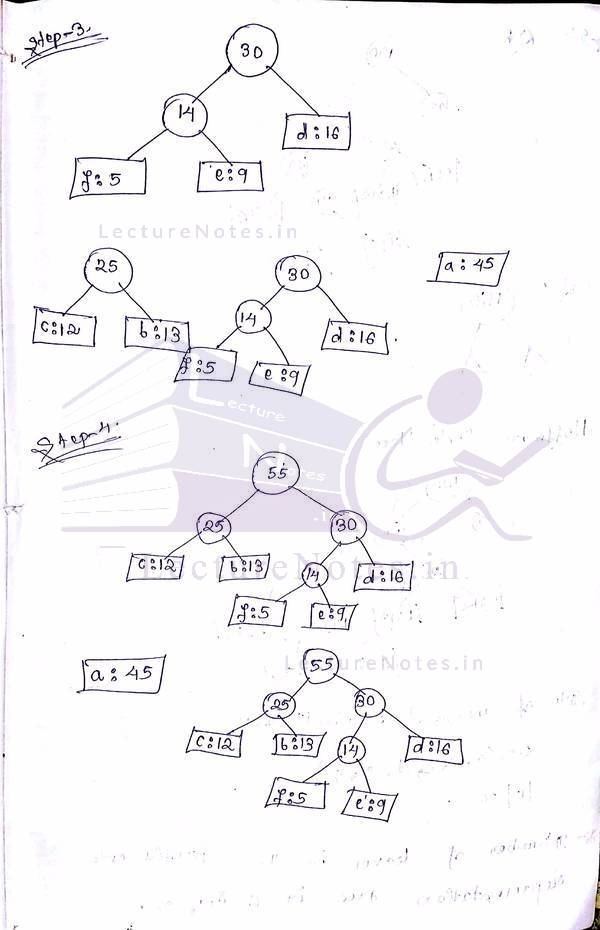 Step-3.
30
14
d:16
f:5 e:9
LectureNotes.in
25 30 a:45
14
c:12 b:13 d:16
f:5 e:9
Lecture
Notes
.in
Step-4.
55
25 30
c:12 b:13 14 d:16
LectureNotes.in
f:5 e:9
LectureNotes.in
a:45 55
25 30
c:12 b:13 14 d:16
f:5 e:9